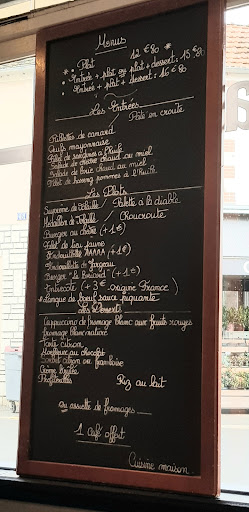 Menus
* Plat 12 € 80
* Entrée + plat ou plat + dessert : 15 € 80
* Entrée + plat + dessert : 1 € 80
Les Entrées
Rillettes de canard Pâté en croûte
Oeufs mayonnaise
Filet de sardines à l'huile
Salade de chèvre chaud au miel
Salade de brie chaud au miel
Filet de hareng pommes à l'huile
Les Plats
Suprême de volaille Palette à la diable
Médaillon de volaille Choucroute
Burger au chèvre (+1€)
Filet de lieu jaune
Andouillette AAAAA (+1€)
Andouillette de Jargeau
Burger "Le Bavard" (+1€)
Entrecôte (+3€ origine France)
Langue de boeuf sauce piquante
Les Desserts
Cappuccino de fromage blanc aux fruits rouges
Fromage blanc nature
Tarte citron
Moelleux au chocolat
Sorbet citron ou framboise
Crème brûlée
Profiteroles Riz au lait
Ou assiette de fromages
1 Café offert
Cuisine maison